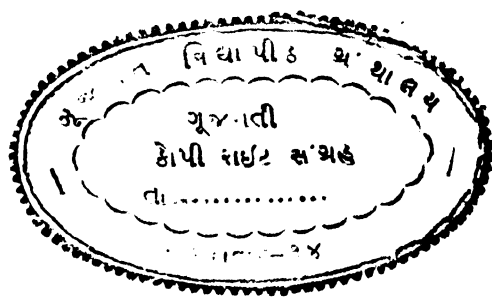 વિદ્યાપીઠ ગ્રંથાલય
ગૂજરાતી
કૉપી રાઈટ સંગ્રહ
તા..............